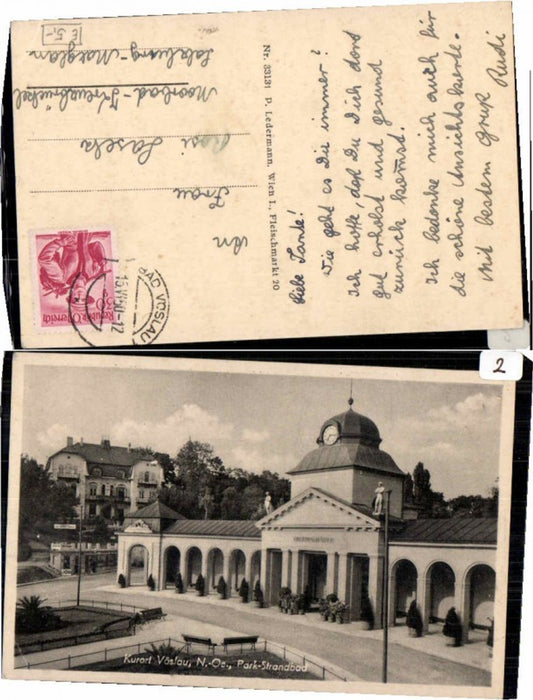 E 5,-
An
Frau
Rosi Lasela
Moorbad-Kreuzbrückel
Salzburg-Maxglan
REPUBLIK ÖSTERREICH
30
BAD VÖSLAU
Nr. 33131 P. Ledermann, Wien I., Fleischmarkt 20
Liebe Tante!
Wie geht es Dir immer?
Ich hoffe, daß Du Dich dort
gut erholst und gesund
zurück kommst.
Ich bedanke mich auch für
die schöne Ansichtskarte.
Mit bestem Gruß Rudi
2
Kurort Vöslau, N.-Oe., Park-Strandbad